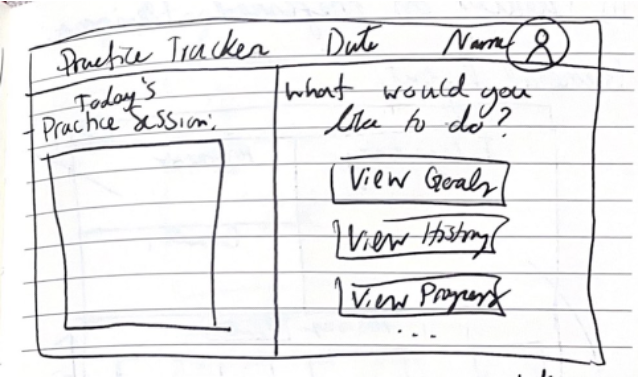 Practice Tracker Date Name
Today's
Practice Session:
What would you
like to do?
View Goals
View History
View Progress
...